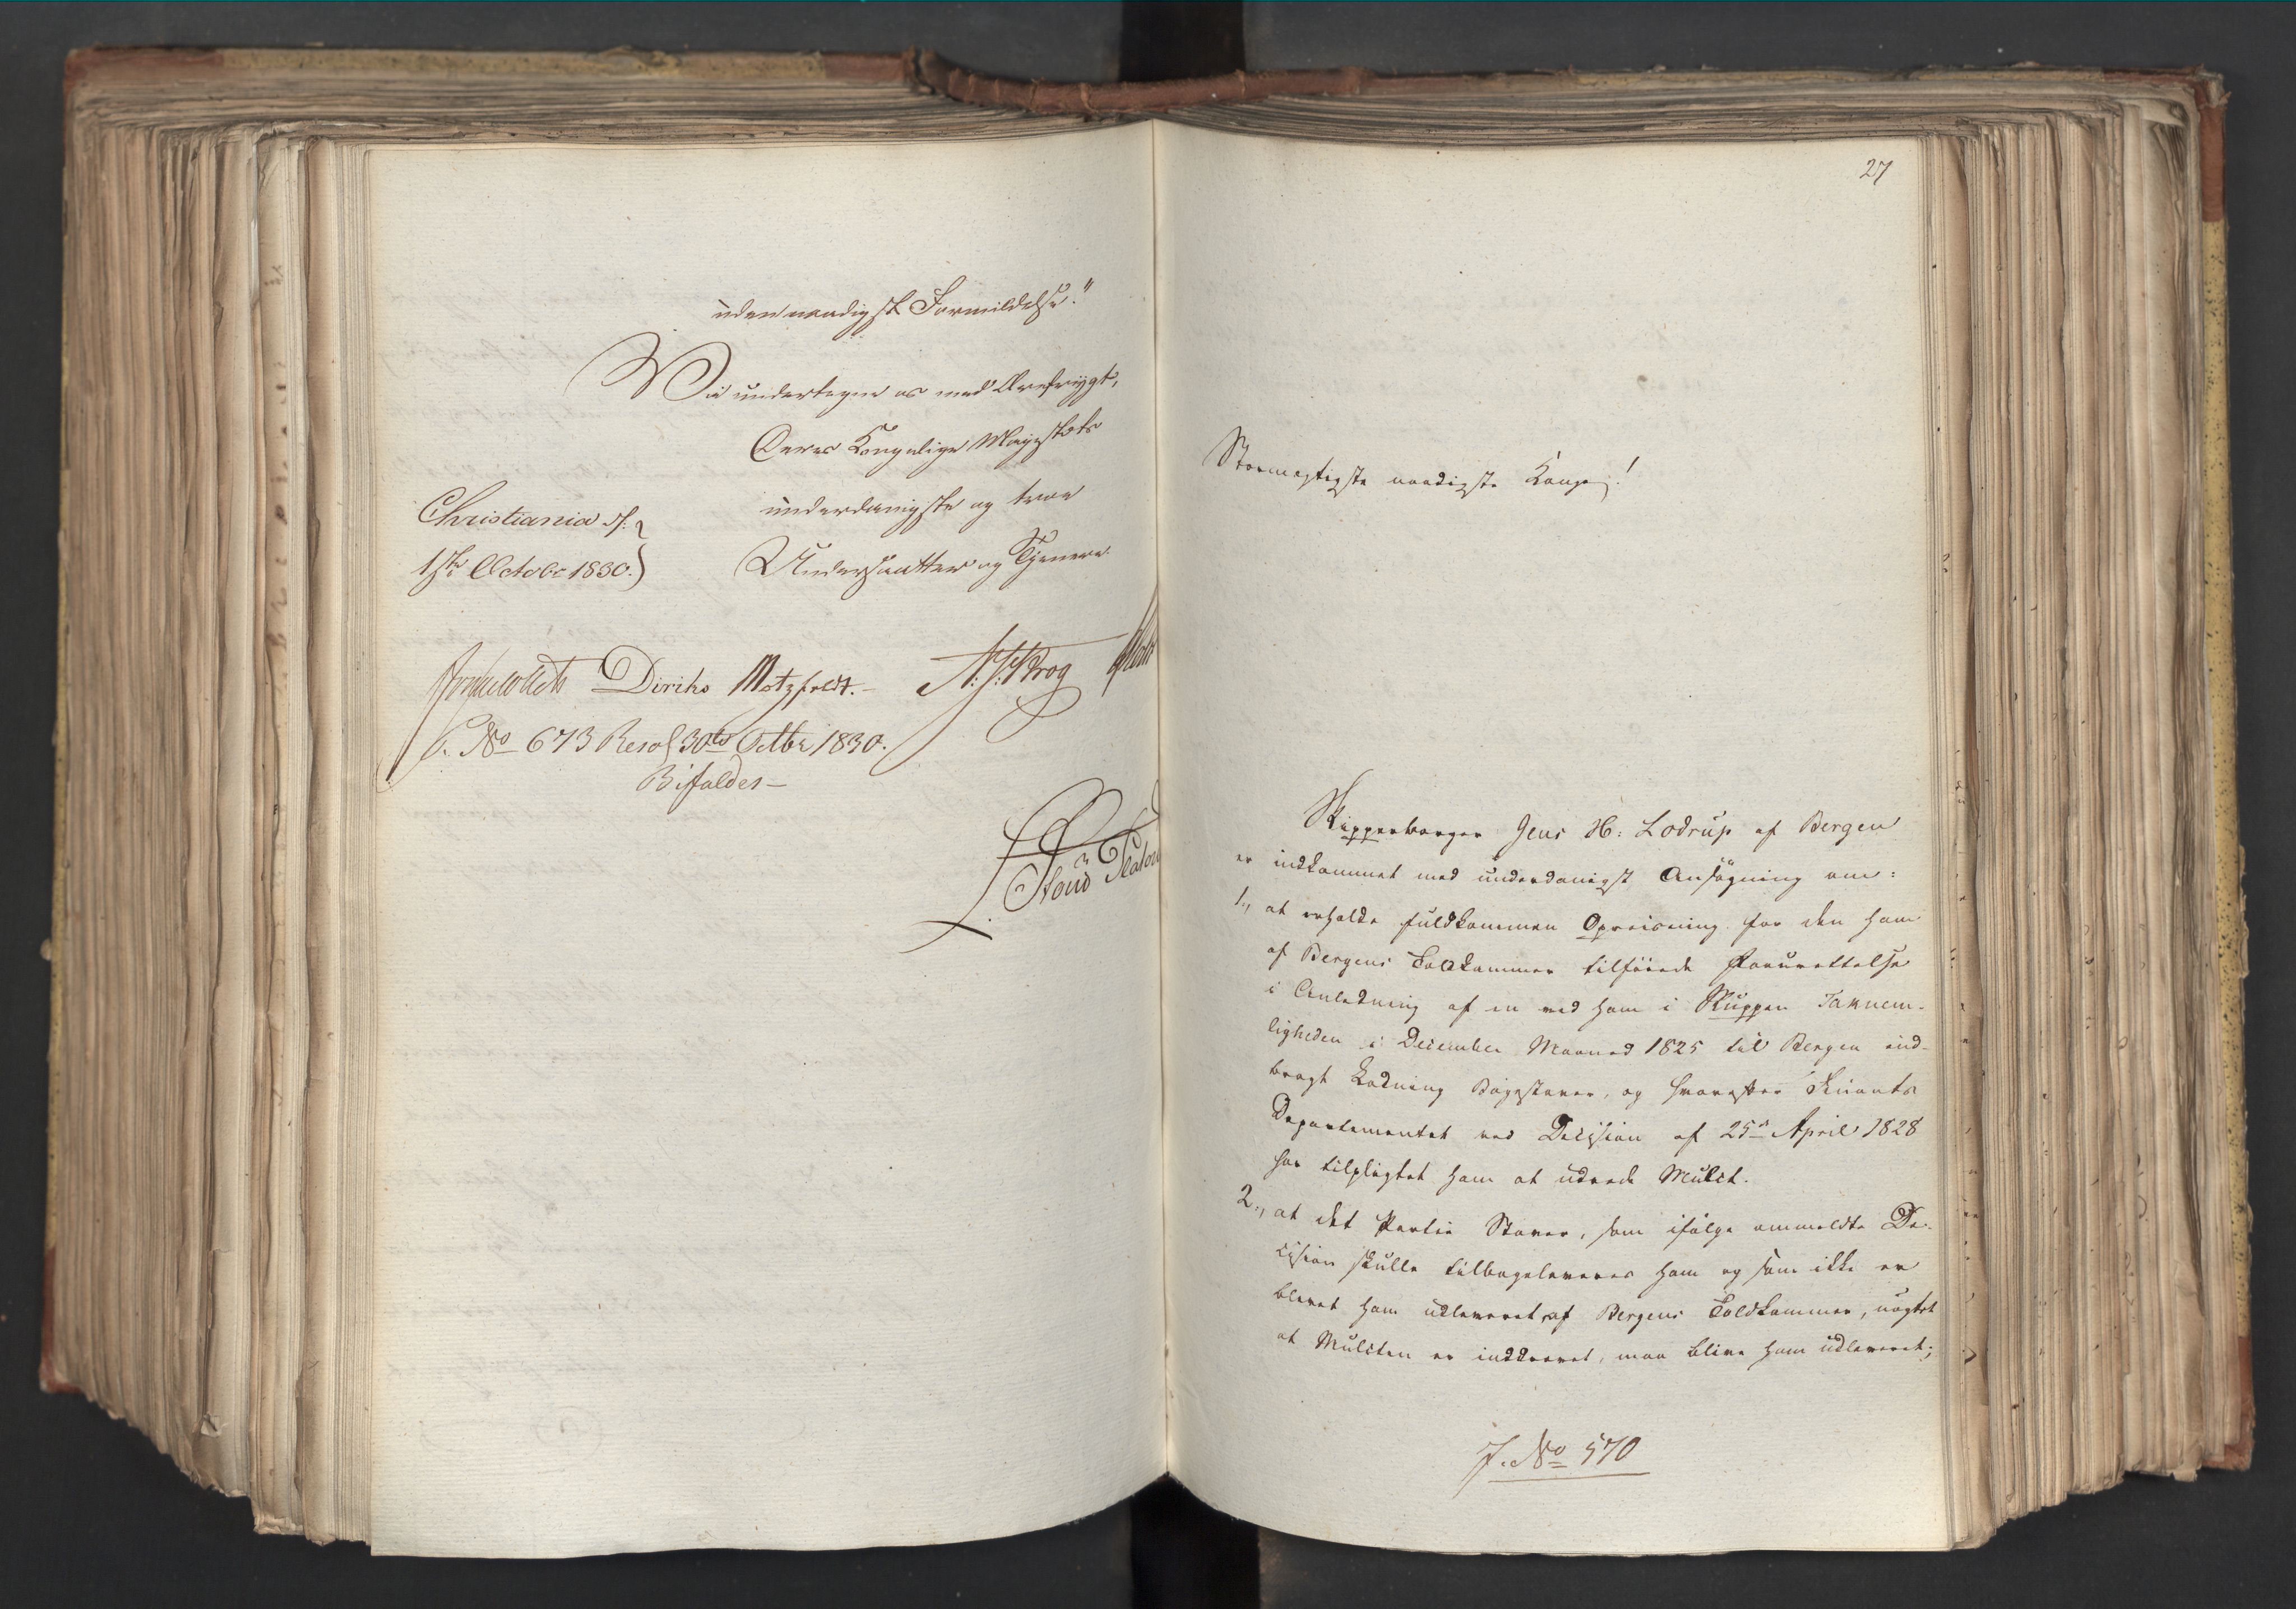 uden naadigst Formildelse."
Vi undertegne os med Ærefrygt,
Deres Kongelige Majestæts
underdanigste og troe
Undersaatter og Tjenere
Christiania d.
1ste Octobr 1830.
Diriks Motzfeldt.- N. J. Krog
No 673 Resol 30te Octbr 1830.
Bifaldes-
27
Stormægtigste naadigste Konge!
Skipperborger Jens H: Lodrup af Bergen
er indkommet med underdanigst Ansøgning om:
1., at erholde fuldkommen Opreisning for den ham
af Bergens Toldkammer tilføiede Forurettelse
i Anledning af en ved ham i Skuppen Taknem-
ligheden i December Maaned 1825 til Bergen ind-
bragt Ladning Bøgestaver, og hvorefter Finants
Departementet ved Decision af 25de April 1828
har tilpligtet ham at udrede Mulct.
2., at det Partie Staver, som ifølge ommeldte De-
cision skulle tilbageleveres ham og som ikke er
blevet ham udleveret af Bergens Toldkammer, uagtet
at Mulcten er inddrevet, maa blive ham udleveret;
J. No 570